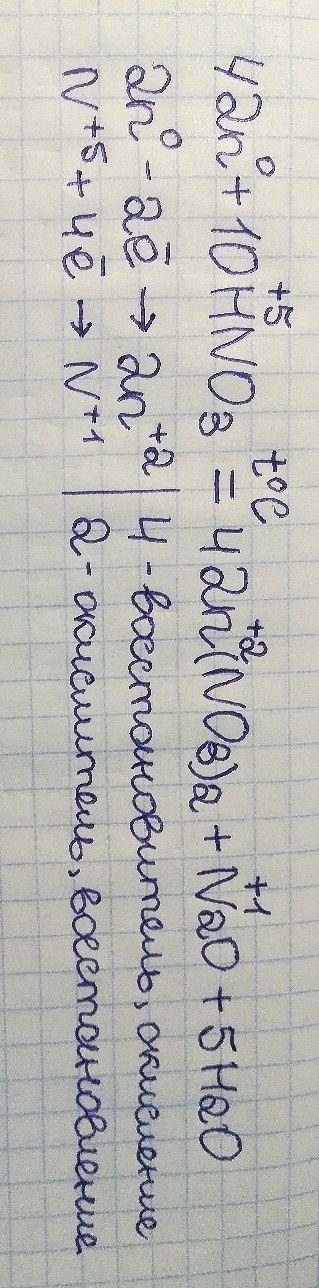 4Zn⁰ + 10HN⁺⁵O₃ =ᵗ°ᶜ 4Zn⁺²(NO₃)₂ + N₂⁺¹O + 5H₂O
Zn⁰ - 2ē → Zn⁺² | 4 - восстановитель, окисление
N⁺⁵ + 4ē → N⁺¹ | 2 - окислитель, восстановление